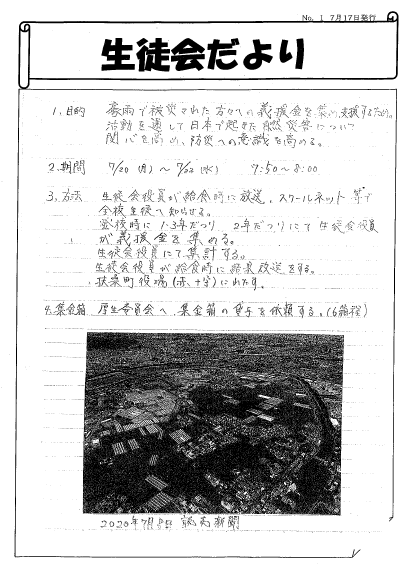 No. 1 7月17日発行
生徒会だより
1.目的 豪雨で被災された方々への義援金を集め、支援するため。
活動を通して日本で起きた自然災害について
関心を高め、防災への意識を高める。
2.期間 7/20(月)~7/22(水) 7:50~8:00
3.方法 生徒会役員が給食時に放送、スクールネット等で
全校生徒へ知らせる。
登校時に1・3年だつり、2年だつりにて生徒会役員
が義援金を集める。
生徒会役員にて集計する。
生徒会役員が給食時に結果放送をする。
扶桑町役場(赤十字)にわたす。
4.集金箱 厚生委員会へ集金箱の貸予を依頼する。(6箱程)
2020年7月 日 読売新聞